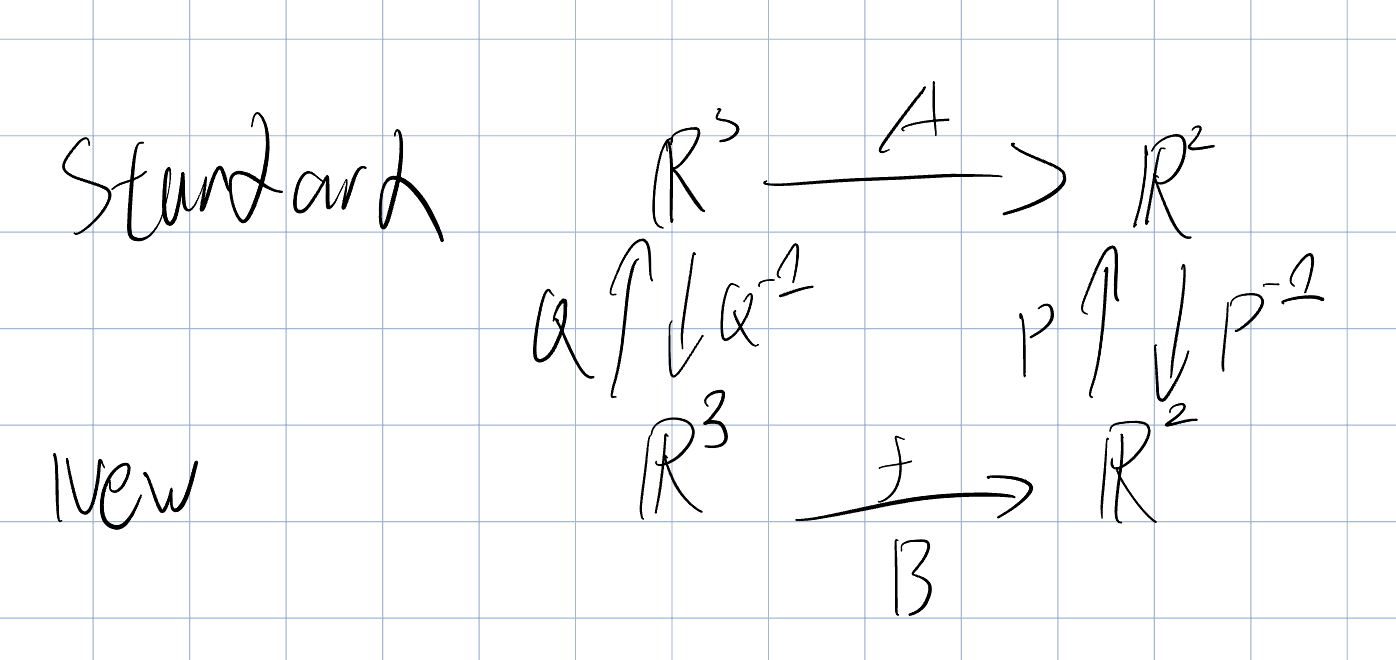 Standard ℝ³ A ℝ²
Q Q⁻¹ P P⁻¹
New ℝ³ f ℝ²
B